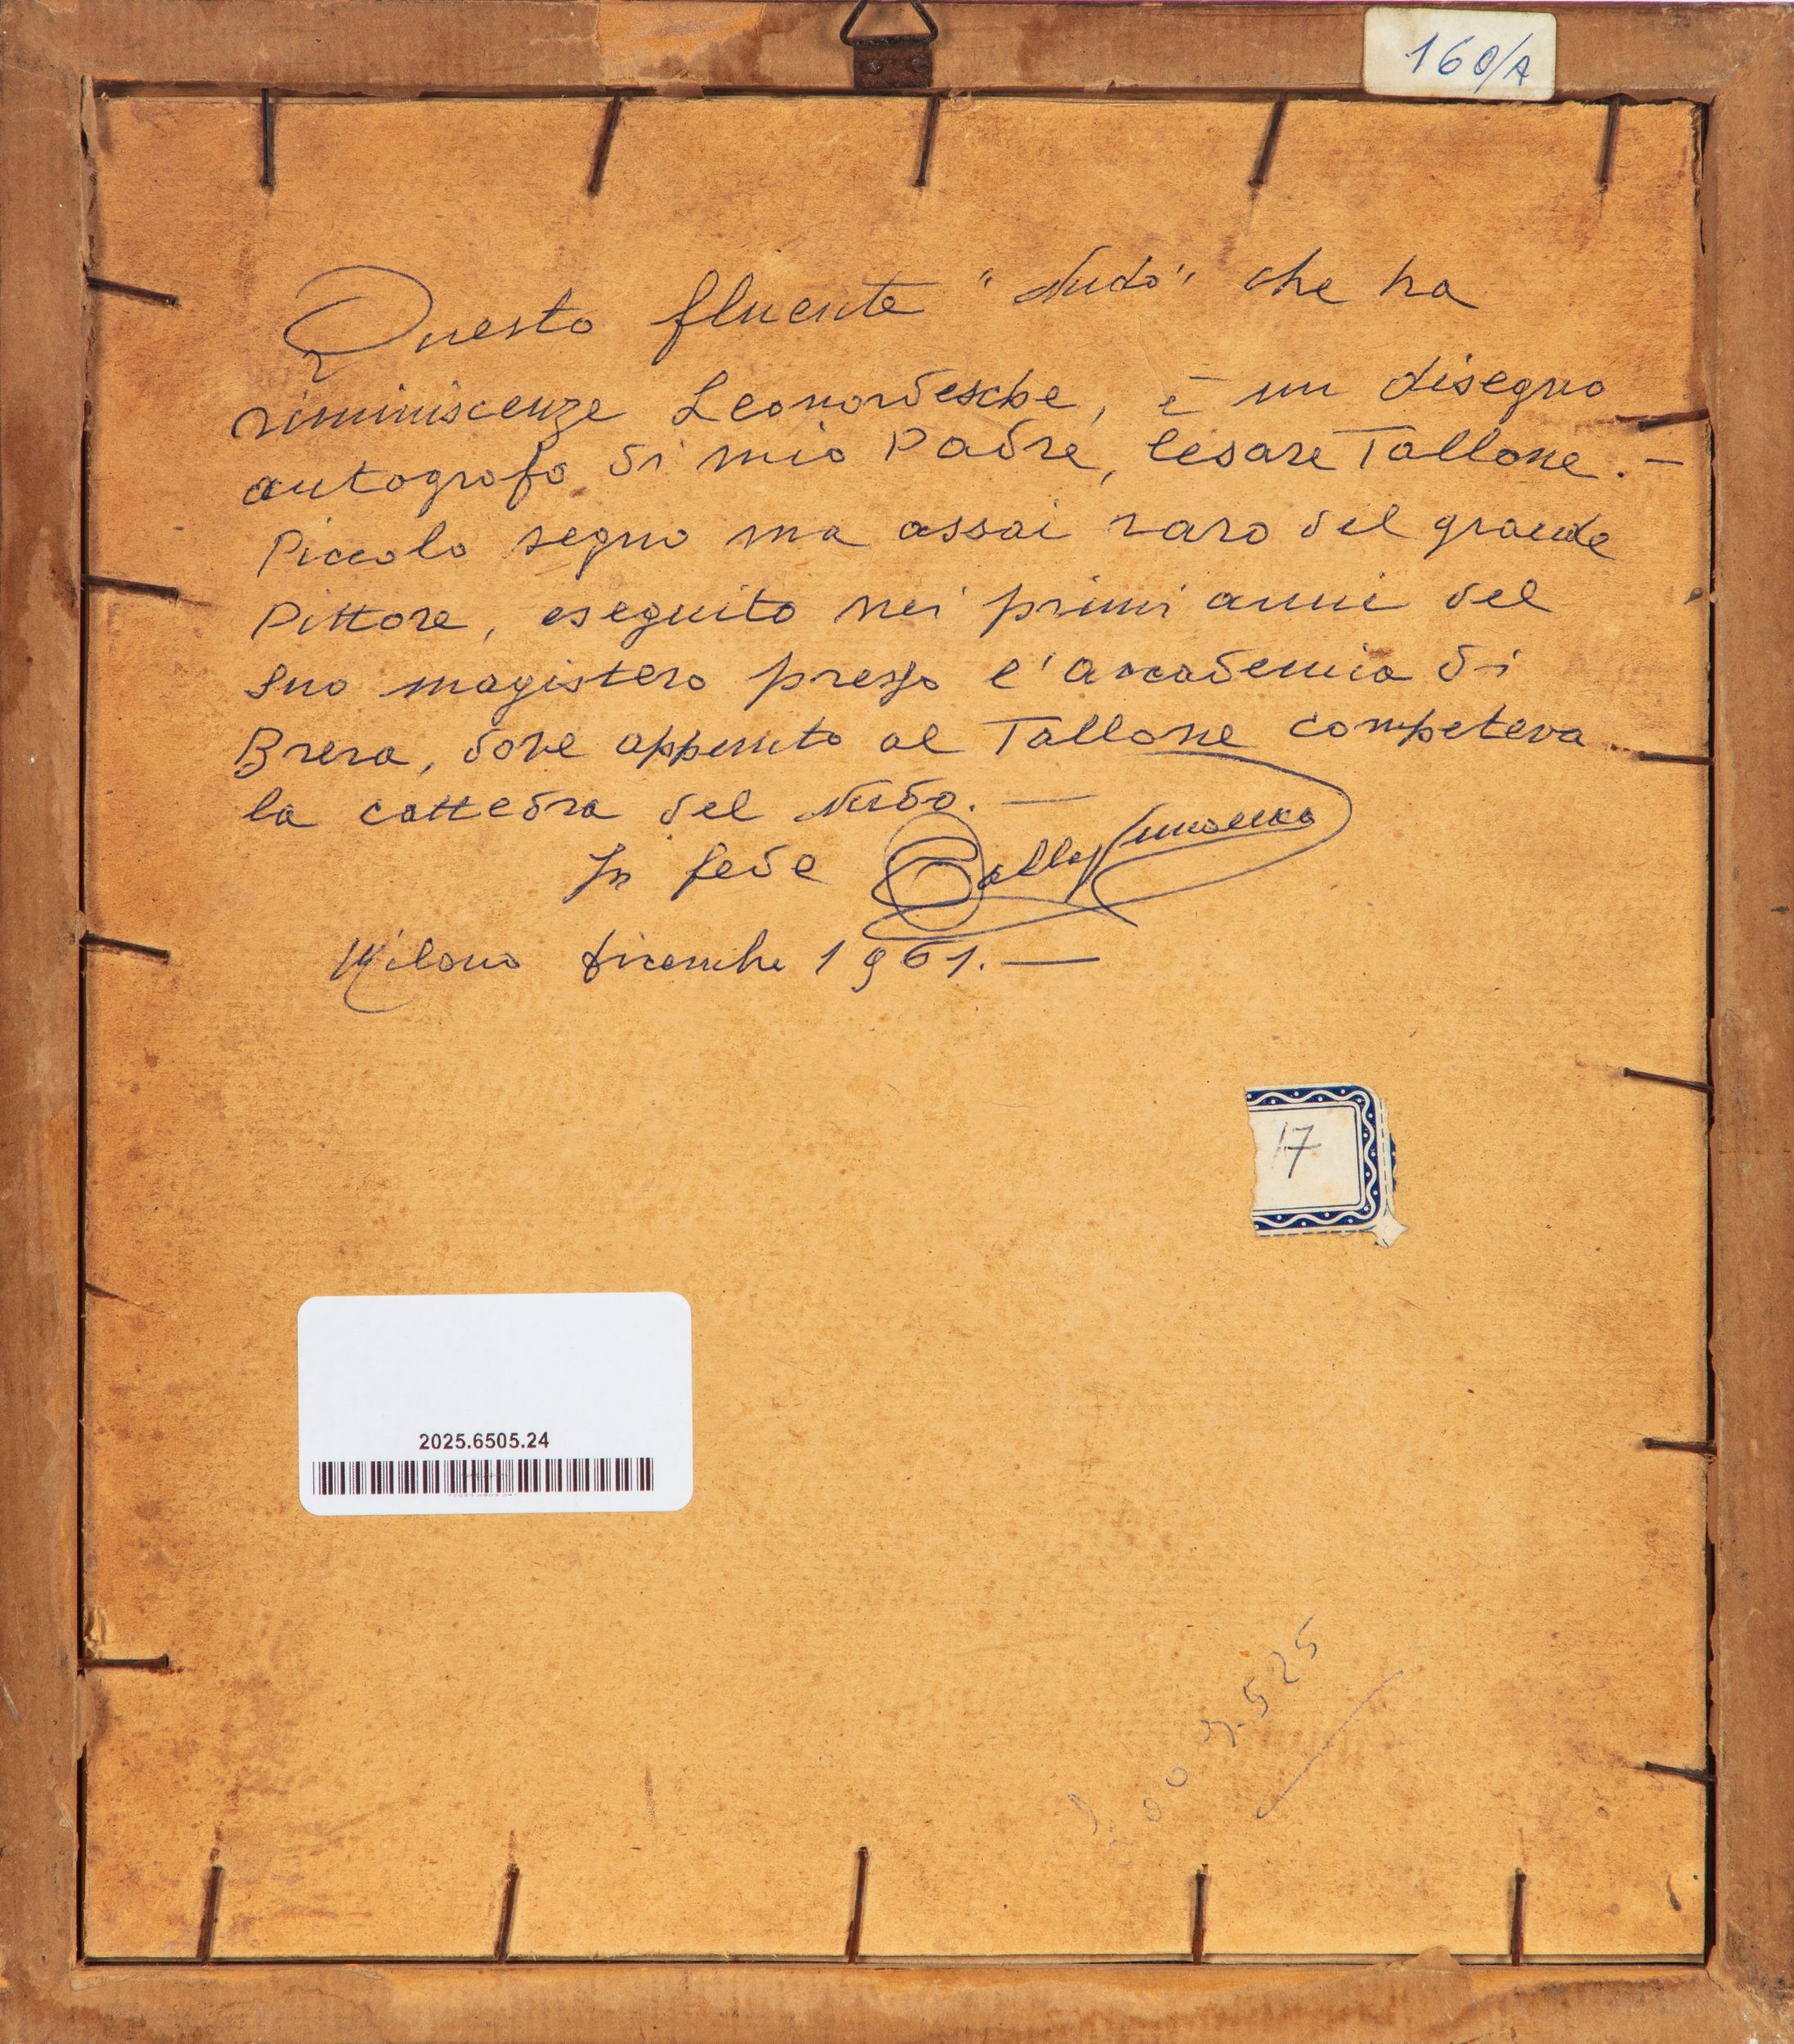 160/A
Questo fluente "Nudo" che ha
riminiscenze Leonardesche, è un disegno
autografo di mio Padre, Cesare Tallone.-
Piccolo segno ma assai raro del grande
Pittore, eseguito nei primi anni del
suo magistero presso l'accademia di
Brera, dove appunto al Tallone competeva
la cattedra del Nudo.—
In fede
Milano dicembre 1961.—
17
2025.6505.24